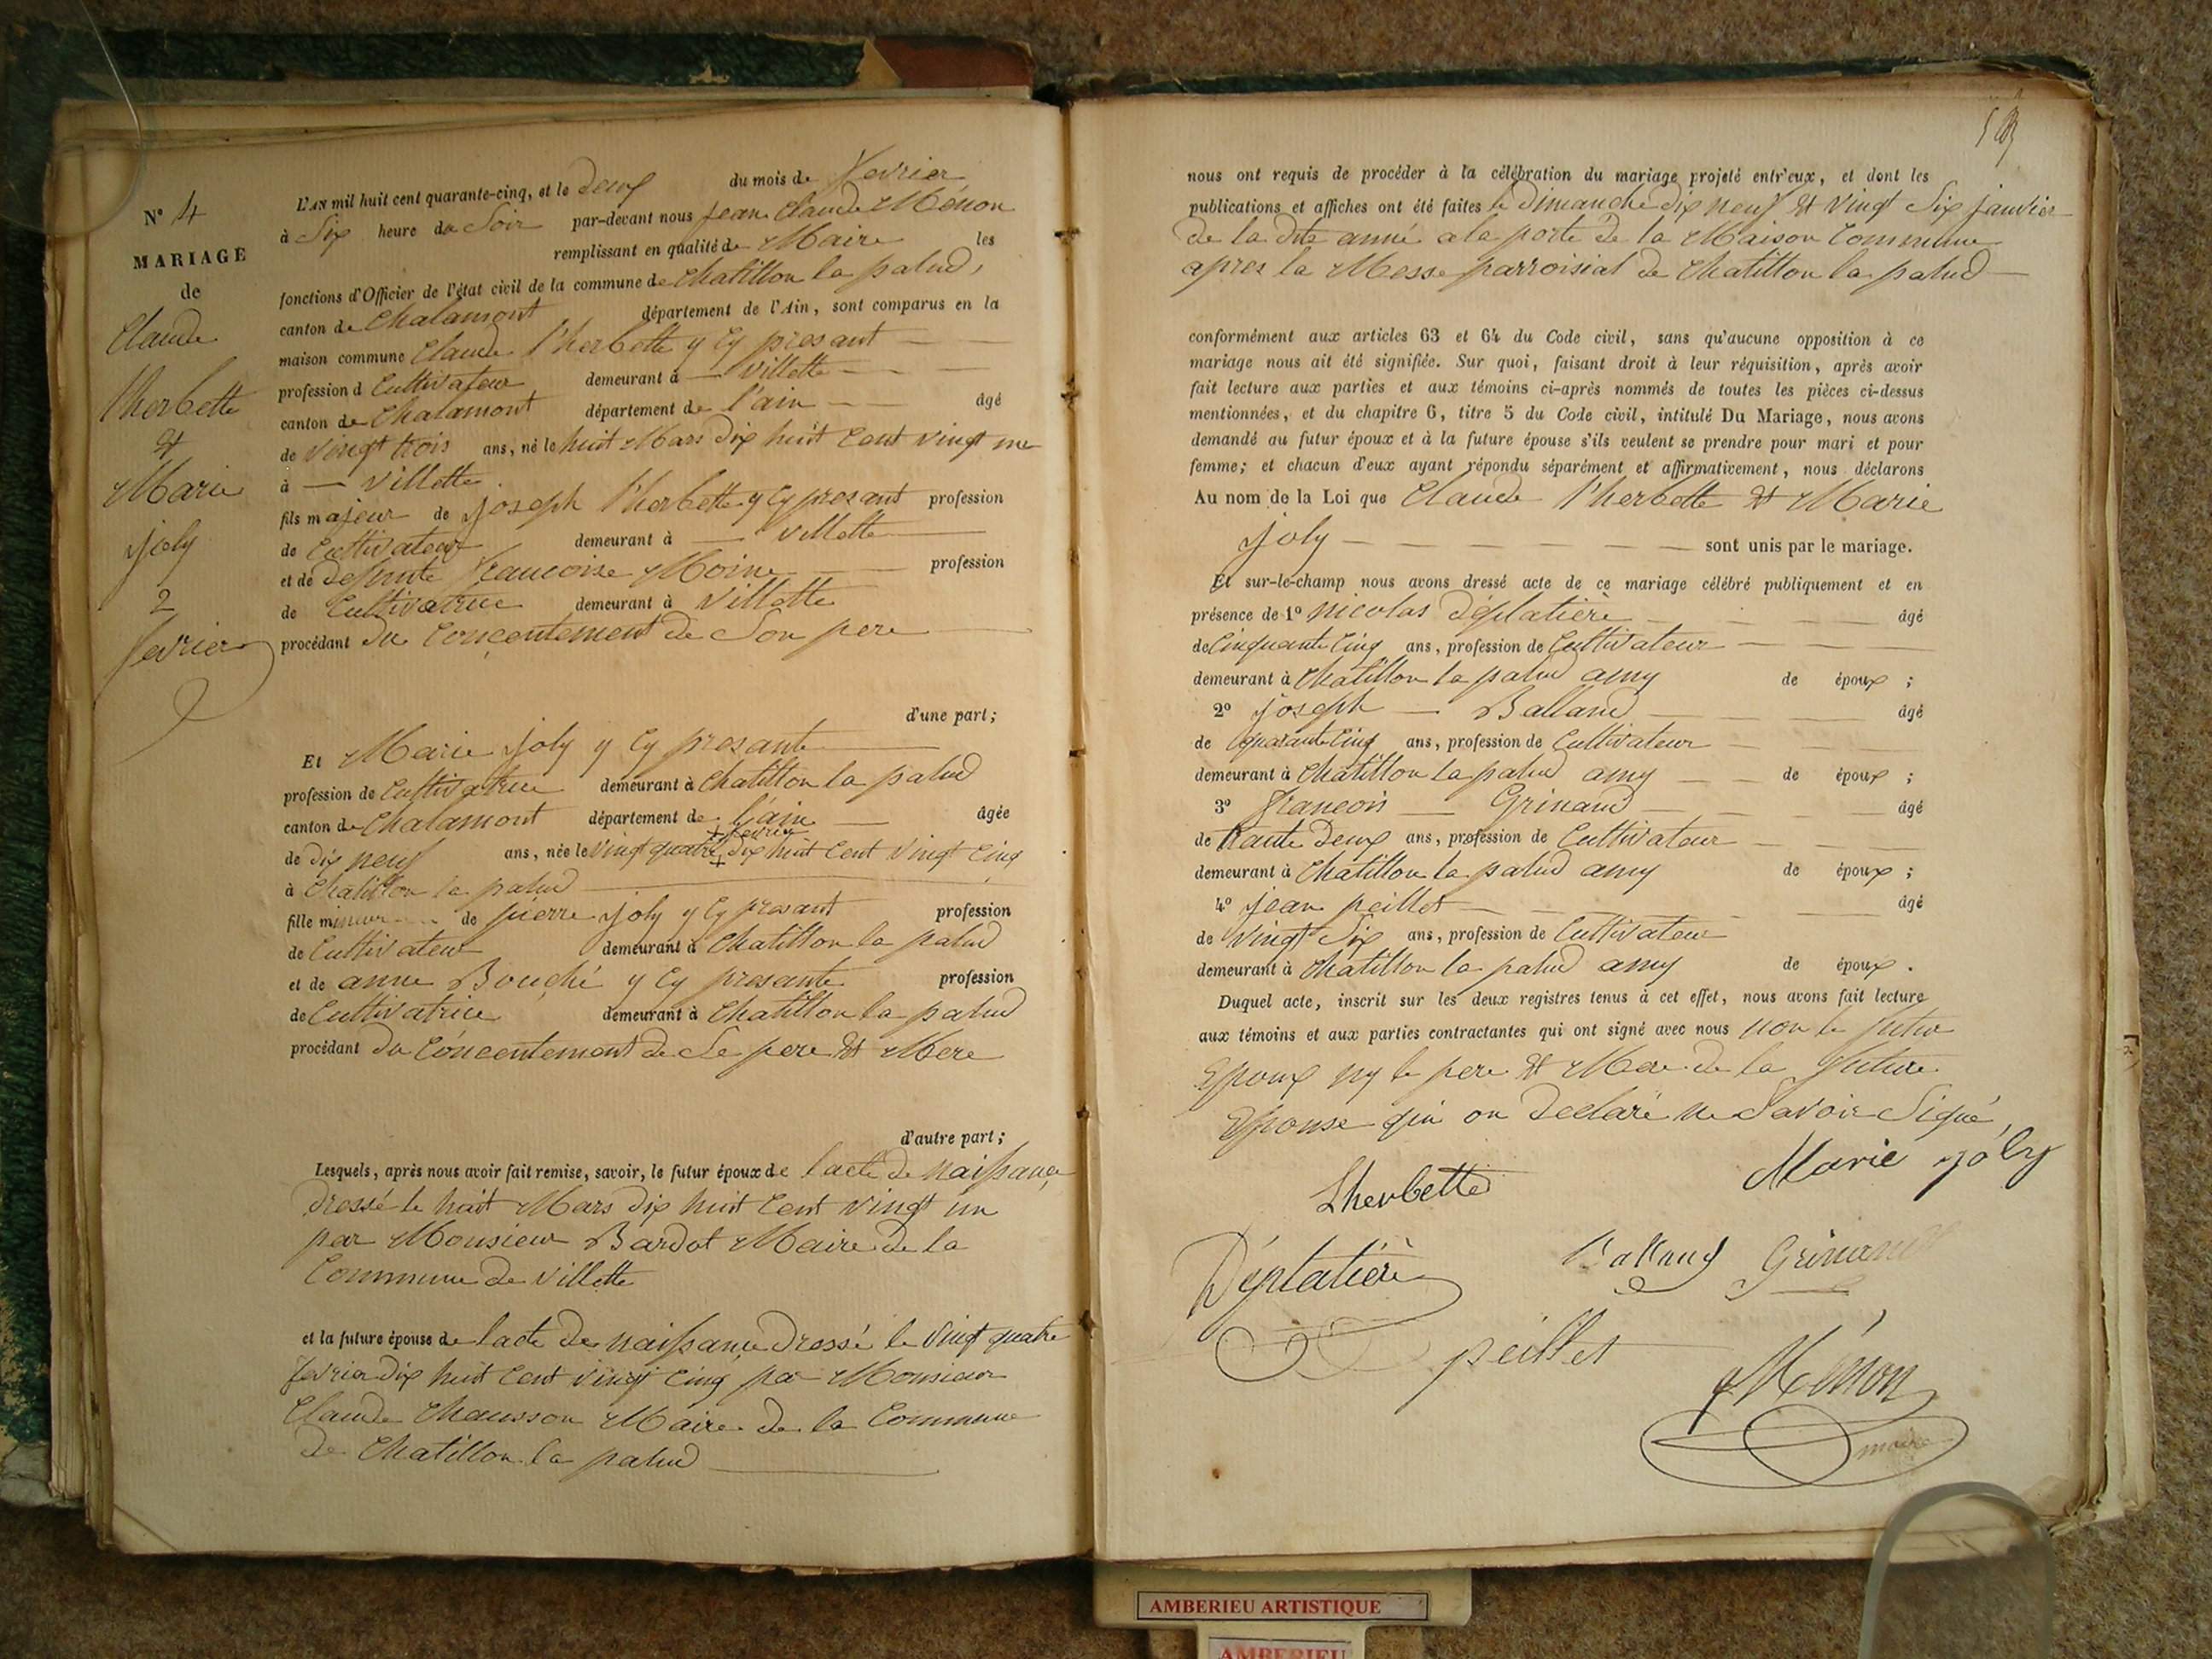 N° 4
MARIAGE
de
Claude
l'herbette
et
Marie
joly
2
fevrier
L'AN mil huit cent quarante-cinq, et le deux du mois de fevrier
à Six heure du Soir par-devant nous jean Claude Ménon
remplissant en qualité de Maire les
fonctions d'Officier de l'état civil de la commune de Chatillon la palud,
canton de Chalamont département de l'Ain, sont comparus en la
maison commune Claude l'herbette y cy presant
profession d Cultivateur demeurant à villette
canton de Chalamont département de l'ain âgé
de vingt trois ans, né le huit Mars dix huit Cent vingt un
à villette
fils majeur de joseph l'herbette y cy presant profession
de Cultivateur demeurant à villette
et de defunte francoise Moine profession
de Cultivatrice demeurant à villette
procédant du Concentement de Son pere
d'une part;
Et Marie joly y cy presante
profession de Cultivatrice demeurant à Chatillon la palud
canton de Chalamont département de l'ain âgée
+ fevrier
de dix neuf ans, née le vingt quatre + dix huit Cent vingt Cinq
à Chatillon la palud
fille mineur de pierre joly y cy presant profession
de Cultivateur demeurant à Chatillon la palud
et de anne Bouché y cy presante profession
de Cultivatrice demeurant à Chatillon la palud
procédant du Concentement de Se pere et Mere
d'autre part;
Lesquels, après nous avoir fait remise, savoir, le futur époux de l'acte de naissance
dressé le huit Mars dix huit Cent vingt un
par Monsieur Bardot Maire de la
Commune de villette
et la future épouse de lacte de naissance dressé le vingt quatre
fevrier dix huit Cent vingt Cinq par Monsieur
Claude Chausson Maire de la Commune
de Chatillon la palud
nous ont requis de procéder à la célébration du mariage projeté entr'eux, et dont les
publications et affiches ont été faites le Dimanche dix neuf et vingt Six janvier
de la dite anné a la porte de la Maison Commune
apres la Messe parroisial de Chatillon la palud
conformément aux articles 63 et 64 du Code civil, sans qu'aucune opposition à ce
mariage nous ait été signifiée. Sur quoi, faisant droit à leur réquisition, après avoir
fait lecture aux parties et aux témoins ci-après nommés de toutes les pièces ci-dessus
mentionnées, et du chapitre 6, titre 5 du Code civil, intitulé Du Mariage, nous avons
demandé au futur époux et à la future épouse s'ils veulent se prendre pour mari et pour
femme; et chacun d'eux ayant répondu séparément et affirmativement, nous déclarons
Au nom de la Loi que Claude l'herbette et Marie
joly sont unis par le mariage.
Et sur-le-champ nous avons dressé acte de ce mariage célébré publiquement et en
présence de 1° nicolas Déplatière âgé
de Cinquante Cinq ans, profession de Cultivateur
demeurant à Chatillon la palud amy de époux ;
2° joseph Balland âgé
de quarante Cinq ans, profession de Cultivateur
demeurant à Chatillon la palud amy de époux ;
3° francois Grinand âgé
de trante deux ans, profession de Cultivateur
demeurant à Chatillon la palud amy de époux ;
4° jean peillet âgé
de vingt Six ans, profession de Cultivateur
demeurant à Chatillon la palud amy de époux .
Duquel acte, inscrit sur les deux registres tenus à cet effet, nous avons fait lecture
aux témoins et aux parties contractantes qui ont signé avec nous non le futur
Epoux ny le pere et Mere de la future
Epouse qui on declaré ne Savoir Signé
Lherbette Marie joly
Déplatière Balland Grinand
peillet Ménon
maire
AMBERIEU ARTISTIQUE
AMBERIEU